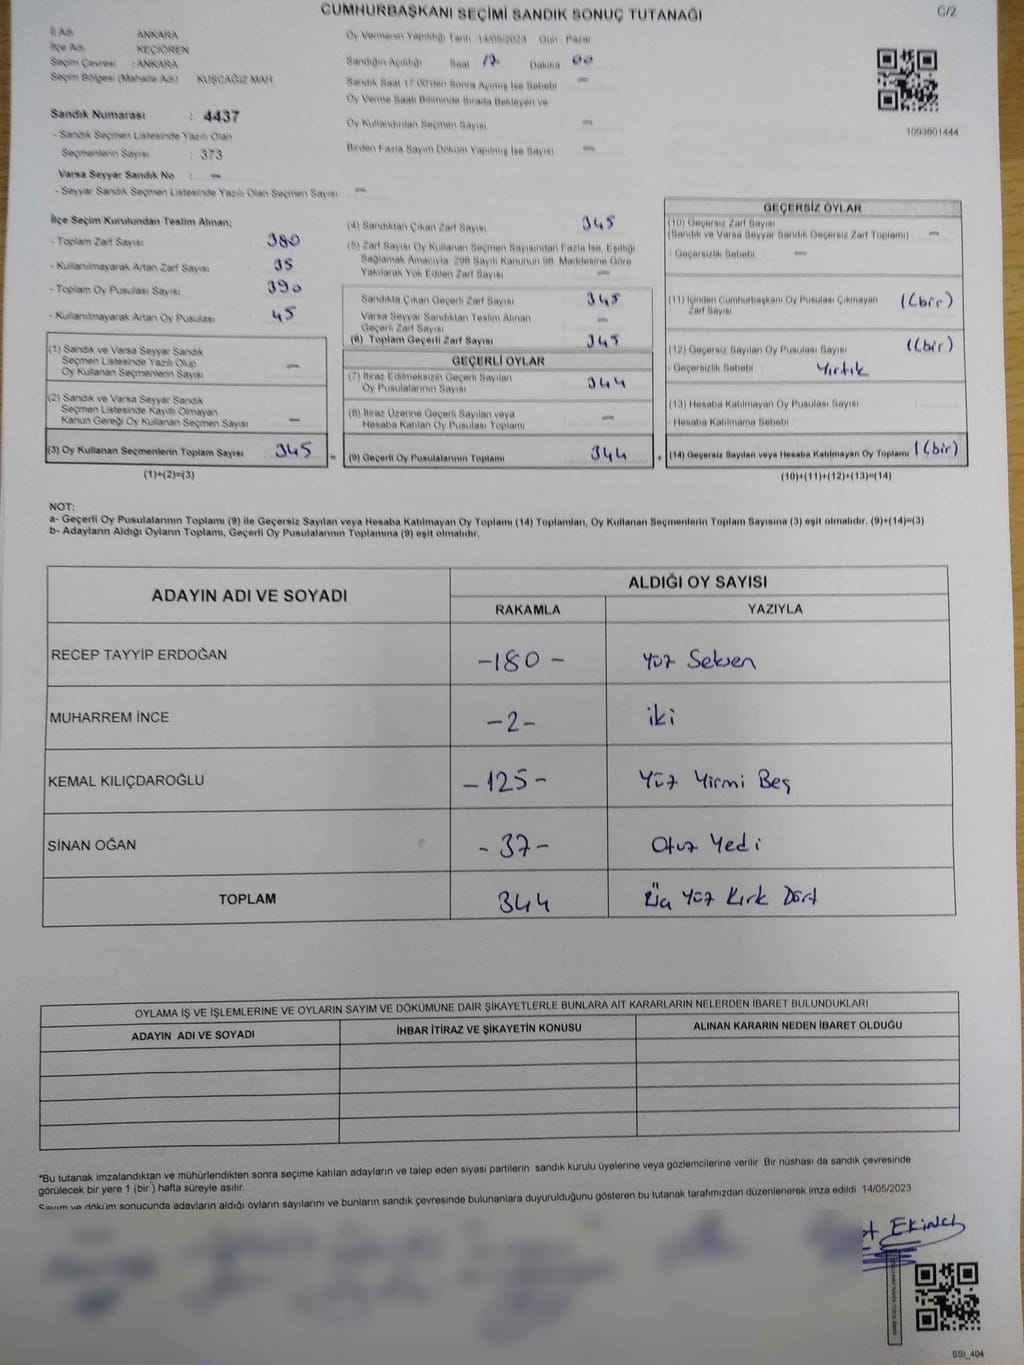 CUMHURBAŞKANI SEÇİMİ SANDIK SONUÇ TUTANAĞI
C/2
İl Adı ANKARA
İlçe Adı KEÇİÖREN
Seçim Çevresi : ANKARA
Seçim Bölgesi (Mahalle Adı) KUŞCAĞIZ MAH
Sandık Numarası : 4437
- Sandık Seçmen Listesinde Yazılı Olan
Seçmenlerin Sayısı : 373
Varsa Seyyar Sandık No : -
- Seyyar Sandık Seçmen Listesinde Yazılı Olan Seçmen Sayısı -
Oy Vermenin Yapıldığı Tarih 14/05/2023 Gün Pazar
Sandığın Açıldığı Saat 17 Dakika 00
Sandık Saat 17:00'den Sonra Açılmış İse Sebebi -
Oy Verme Saati Bitiminde Sırada Bekleyen ve
Oy Kullandırılan Seçmen Sayısı -
Birden Fazla Sayım Döküm Yapılmış İse Sayısı -
1093601444
İlçe Seçim Kurulundan Teslim Alınan;
- Toplam Zarf Sayısı 380
- Kullanılmayarak Artan Zarf Sayısı 35
- Toplam Oy Pusulası Sayısı 390
- Kullanılmayarak Artan Oy Pusulası 45
(1) Sandık ve Varsa Seyyar Sandık
Seçmen Listesinde Yazılı Olup
Oy Kullanan Seçmenlerin Sayısı -
(2) Sandık ve Varsa Seyyar Sandık
Seçmen Listesinde Kayıtlı Olmayan
Kanun Gereği Oy Kullanan Seçmen Sayısı -
(3) Oy Kullanan Seçmenlerin Toplam Sayısı 345
(1)+(2)=(3)
(4) Sandıktan Çıkan Zarf Sayısı 345
(5) Zarf Sayısı Oy Kullanan Seçmen Sayısından Fazla İse, Eşitliği
Sağlamak Amacıyla, 298 Sayılı Kanunun 98. Maddesine Göre
Yakılarak Yok Edilen Zarf Sayısı -
Sandıkta Çıkan Geçerli Zarf Sayısı 345
Varsa Seyyar Sandıktan Teslim Alınan
Geçerli Zarf Sayısı -
(6) Toplam Geçerli Zarf Sayısı 345
GEÇERLİ OYLAR
(7) İtiraz Edilmeksizin Geçerli Sayılan
Oy Pusulalarının Sayısı 344
(8) İtiraz Üzerine Geçerli Sayılan veya
Hesaba Katılan Oy Pusulası Toplamı -
= (9) Geçerli Oy Pusulalarının Toplamı 344
GEÇERSİZ OYLAR
(10) Geçersiz Zarf Sayısı
(Sandık ve Varsa Seyyar Sandık Geçersiz Zarf Toplamı) -
- Geçersizlik Sebebi -
(11) İçinden Cumhurbaşkanı Oy Pusulası Çıkmayan
Zarf Sayısı 1(bir)
(12) Geçersiz Sayılan Oy Pusulası Sayısı 1(bir)
- Geçersizlik Sebebi Yırtık
(13) Hesaba Katılmayan Oy Pusulası Sayısı
- Hesaba Katılmama Sebebi
+ (14) Geçersiz Sayılan veya Hesaba Katılmayan Oy Toplamı 1(bir)
(10)+(11)+(12)+(13)=(14)
NOT:
a- Geçerli Oy Pusulalarının Toplamı (9) ile Geçersiz Sayılan veya Hesaba Katılmayan Oy Toplamı (14) Toplamları, Oy Kullanan Seçmenlerin Toplam Sayısına (3) eşit olmalıdır. (9)+(14)=(3)
b- Adayların Aldığı Oyların Toplamı, Geçerli Oy Pusulalarının Toplamına (9) eşit olmalıdır.
ADAYIN ADI VE SOYADI
ALDIĞI OY SAYISI
RAKAMLA YAZIYLA
RECEP TAYYİP ERDOĞAN -180- Yüz Seksen
MUHARREM İNCE -2- iki
KEMAL KILIÇDAROĞLU -125- Yüz Yirmi Beş
SİNAN OĞAN -37- Otuz Yedi
TOPLAM 344 Üç Yüz Kırk Dört
OYLAMA İŞ VE İŞLEMLERİNE VE OYLARIN SAYIM VE DÖKÜMÜNE DAİR ŞİKAYETLERLE BUNLARA AİT KARARLARIN NELERDEN İBARET BULUNDUKLARI
ADAYIN ADI VE SOYADI İHBAR İTİRAZ VE ŞİKAYETİN KONUSU ALINAN KARARIN NEDEN İBARET OLDUĞU
*Bu tutanak imzalandıktan ve mühürlendikten sonra seçime katılan adayların ve talep eden siyasi partilerin sandık kurulu üyelerine veya gözlemcilerine verilir. Bir nüshası da sandık çevresinde
görülecek bir yere 1 (bir) hafta süreyle asılır.
Sayım ve döküm sonucunda adayların aldığı oyların sayılarını ve bunların sandık çevresinde bulunanlara duyurulduğunu gösteren bu tutanak tarafımızdan düzenlenerek imza edildi 14/05/2023
Ekinci
SSI_404